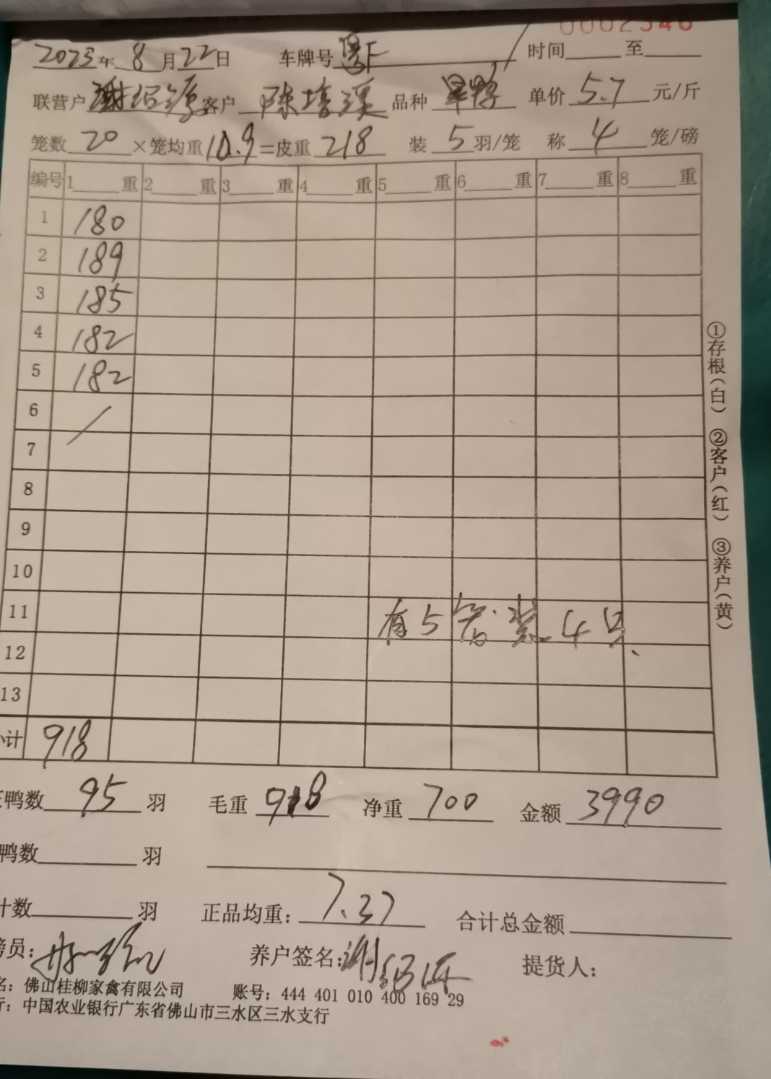 0002546
2023年8月22日 车牌号 粤F 时间 至
联营户 谢绍源 客户 陈培溪 品种 旱鸭 单价 5.7 元/斤
笼数 20 ×笼均重 10.9 =皮重 218 装 5 羽/笼 称 4 笼/磅
编号 1 重 2 重 3 重 4 重 5 重 6 重 7 重 8 重
1 180
2 189
3 185
4 182
5 182
6
7
8
9
10
11 有5笼装4只
12
13
小计 918
正鸭数 95 羽 毛重 918 净重 700 金额 3990
鸭数 羽
计数 羽 正品均重: 7.37 合计总金额
磅员: 养户签名: 谢绍源 提货人:
名: 佛山桂柳家禽有限公司 账号: 444 401 010 400 169 29
行: 中国农业银行广东省佛山市三水区三水支行
①存根(白) ②客户(红) ③养户(黄)